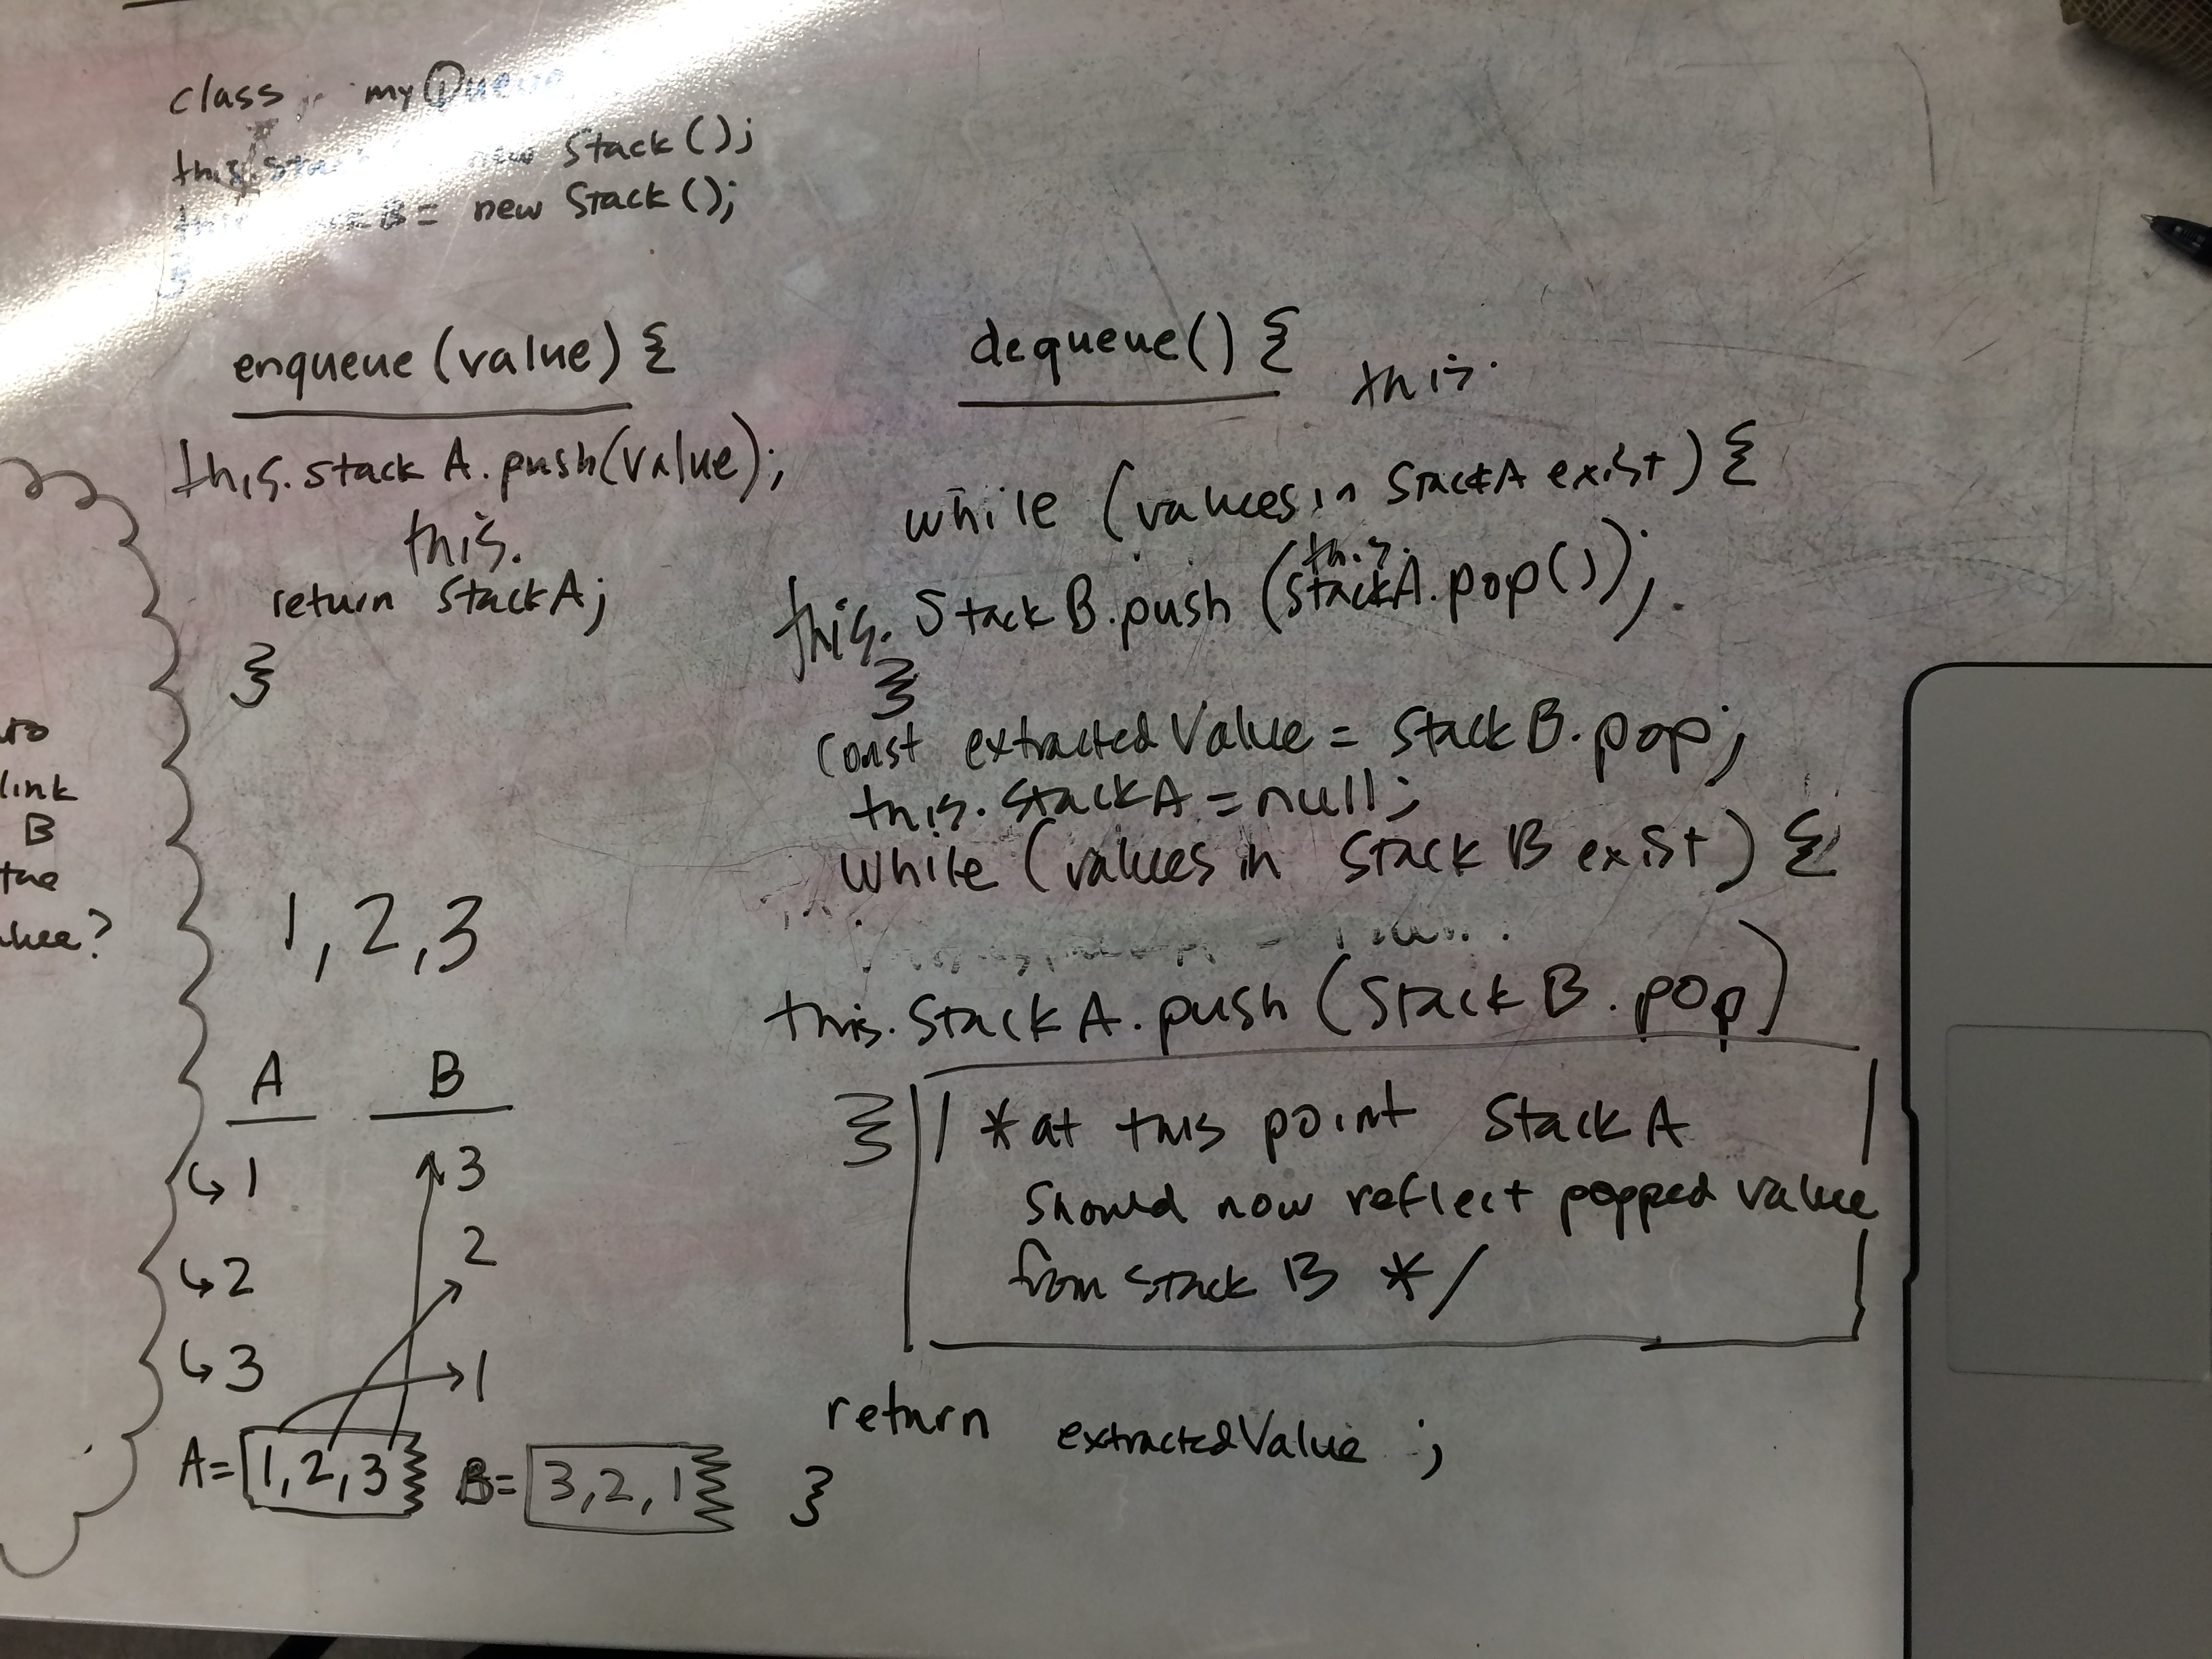 class myQueue
this.stack new Stack();
B = new Stack();
}
enqueue(value) {
this.stack A.push(value);
this.
return stackA;
}
dequeue() {
this.
while (values in StackA exist) {
this.
this. Stack B.push (stackA.pop());
}
const extracted Value = Stack B.pop;
this.stackA = null;
while (values in Stack B exist) {
this.stack A.push (Stack B.pop)
}
/* at this point Stack A
should now reflect popped value
from stack B */
return extractedValue ;
}
link
B
the
1, 2, 3
A B
↳ 1 3
↳ 2 2
↳ 3 1
A = 1, 2, 3 B = 3, 2, 1